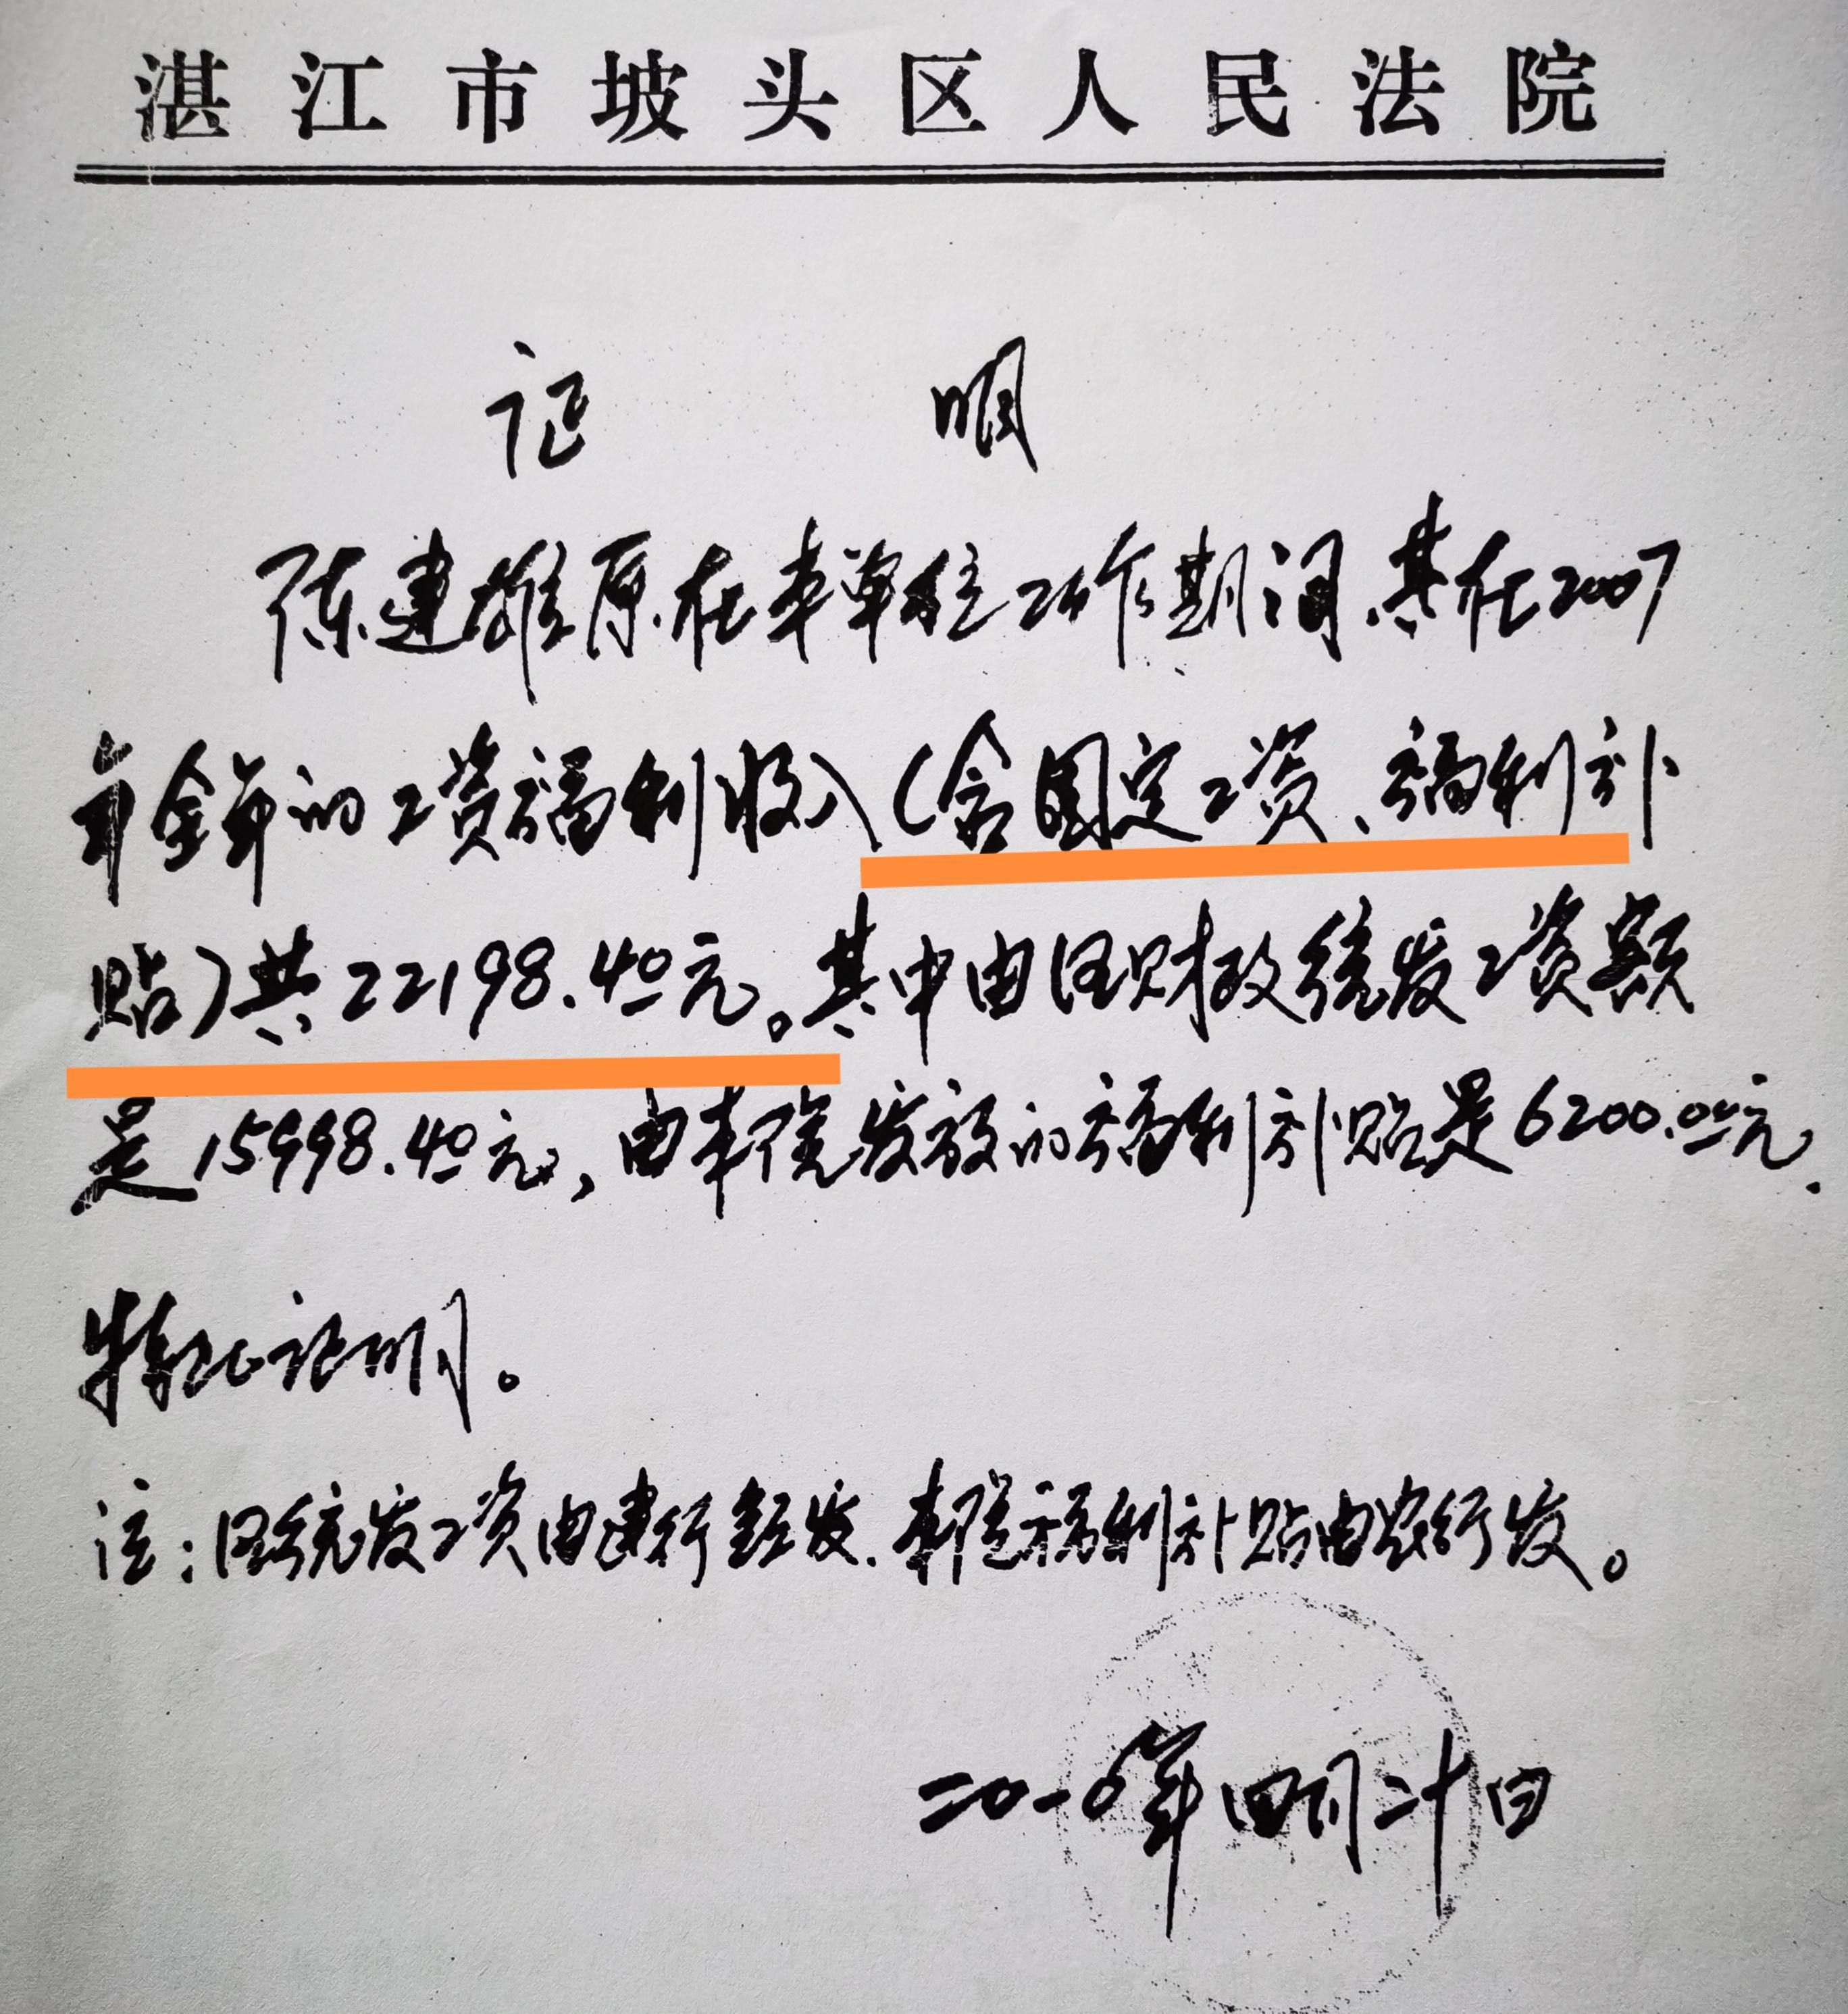 湛江市坡头区人民法院
证明
陈建雄原在本单位工作期间,其在2007
年全年的工资福利收入(含固定工资、福利补
贴)共22198.40元。其中由区财政统发工资额
是15998.40元,由本院发放的福利补贴是6200.00元.
特此证明。
注:区统发工资由建行经发.本院福利补贴由农行发。
二〇一六年四月二十日